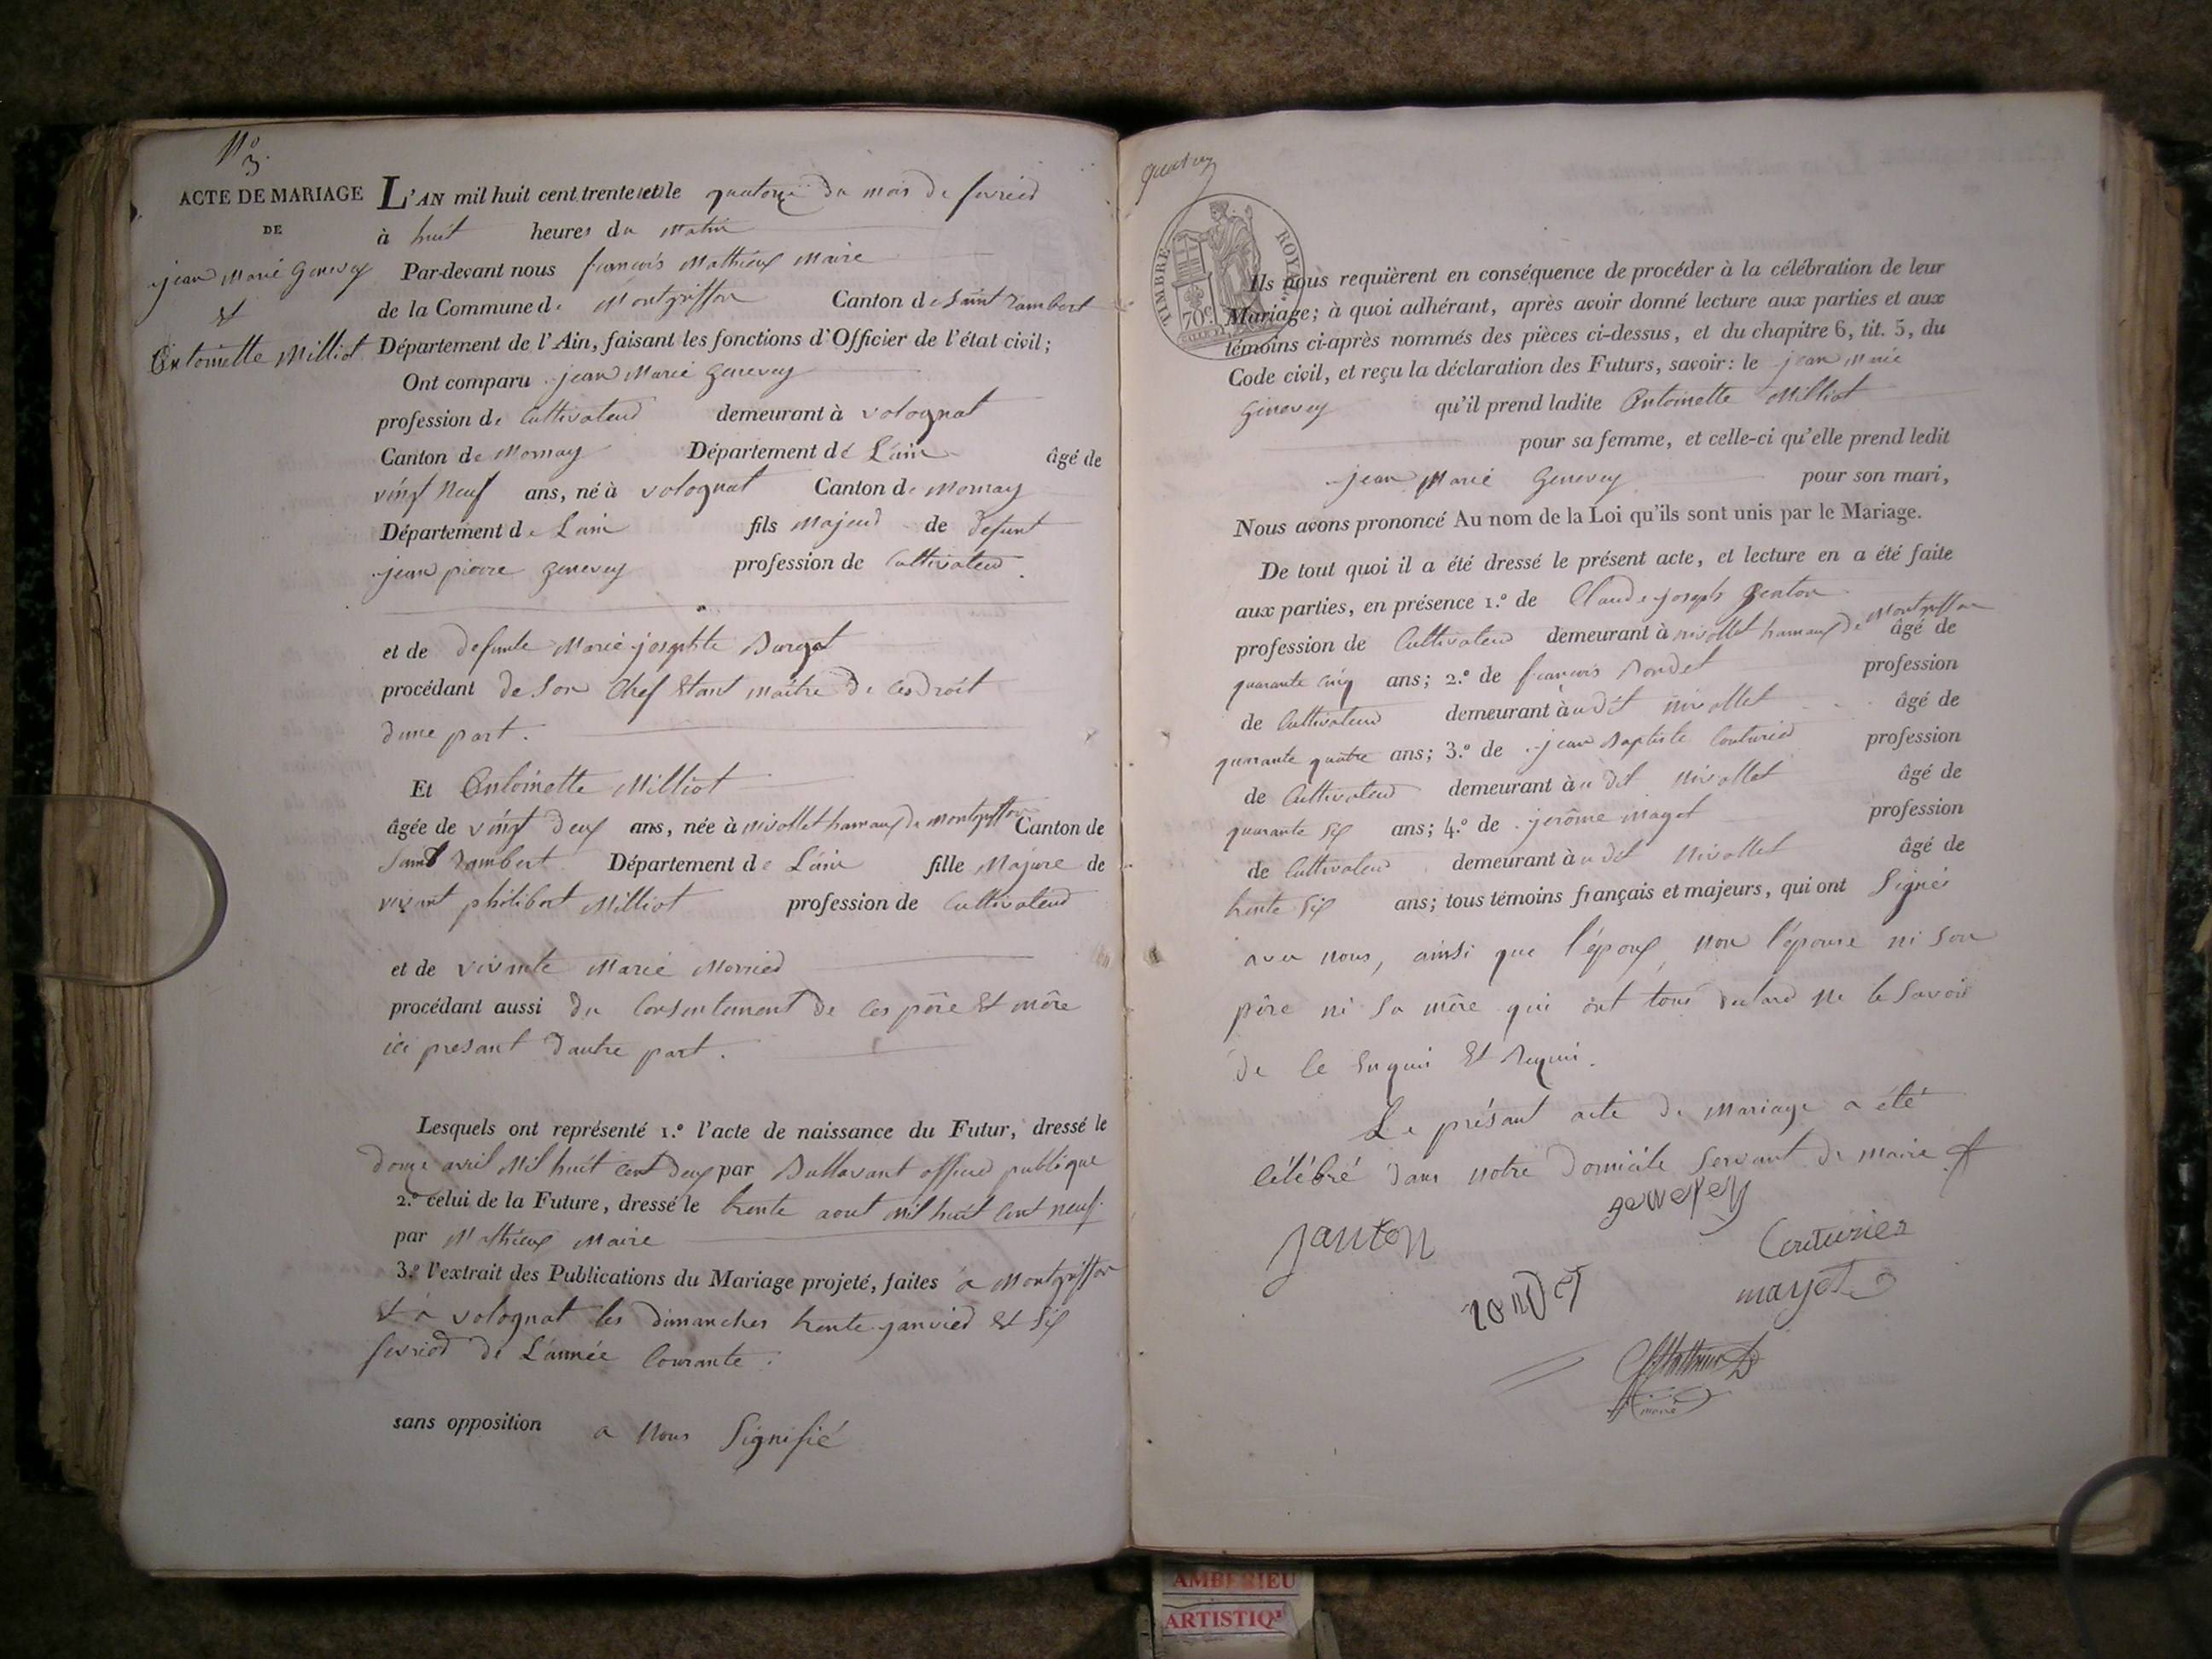 N.º 3.
ACTE DE MARIAGE
DE
jean Marie Genevey
et
Antoinette Milliot
L'AN mil huit cent trente et le quatorze du mois de fevrier
à huit heures du Matin
Par-devant nous francois Mathieux Maire
de la Commune de Montgriffon Canton de Saint Rambert
Département de l'Ain, faisant les fonctions d'Officier de l'état civil;
Ont comparu jean Marie Genevey
profession de Cultivateur demeurant à volognat
Canton de Mornay Département de L'ain âgé de
vingt Neuf ans, né à volognat Canton de Mornay
Département de Lain fils Majeur de defunt
jean pierre genevey profession de Cultivateur.
et de defunte Marie josephte
procédant de Son Chef Etant maître de ces droit
dune part.
Et Antoinette Milliot
âgée de vingt deux ans, née à nivollet hamaux de montgriffon Canton de
Saint Rambert Département de L'ain fille Majure de
vivant philibert Milliot profession de Cultivateur
et de vivante Marie
procédant aussi du Consentement de ces père et mère
ici presant d'autre part.
Lesquels ont représenté 1.º l'acte de naissance du Futur, dressé le
douze avril Mil huit cent deux par officier publique
2.º celui de la Future, dressé le trente aout mil huit cent neuf.
par Mathieux Maire
3.º l'extrait des Publications du Mariage projeté, faites à Montgriffon
et à volognat les dimanches trente janvier et Six
fevrier de L'année Courante.
sans opposition a Nous Signifié
TIMBRE ROYAL
70c.
Ils nous requièrent en conséquence de procéder à la célébration de leur
Mariage; à quoi adhérant, après avoir donné lecture aux parties et aux
témoins ci-après nommés des pièces ci-dessus, et du chapitre 6, tit. 5, du
Code civil, et reçu la déclaration des Futurs, savoir: le jean Marie
Genevey qu'il prend ladite Antoinette Milliot
pour sa femme, et celle-ci qu'elle prend ledit
jean Marie Genevey pour son mari,
Nous avons prononcé Au nom de la Loi qu'ils sont unis par le Mariage.
De tout quoi il a été dressé le présent acte, et lecture en a été faite
aux parties, en présence 1.º de Claude joseph
profession de Cultivateur demeurant à nivollet hamaux de Montgriffon âgé de
quarante cinq ans; 2.º de francois Rondet profession
de Cultivateur demeurant à udit nivollet âgé de
quarante quatre ans; 3.º de jean Baptiste Couturier profession
de Cultivateur demeurant à udit Nivollet âgé de
quarante Six ans; 4.º de jerôme magot profession
de Cultivateur demeurant à udit Nivollet âgé de
trente Six ans; tous témoins français et majeurs, qui ont Signés
avec nous, ainsi que l'époux, non l'épouse ni son
père ni sa mère qui ont tous declaré ne le Savoir
de ce Enquis Et Requis.
Le présant acte de Mariage a été
Célébré dans notre Domicile Servant de mairie
genevey
janton
Couturier
rondet
mayot
Mathieux
maire
AMBERIEU
ARTISTIQ